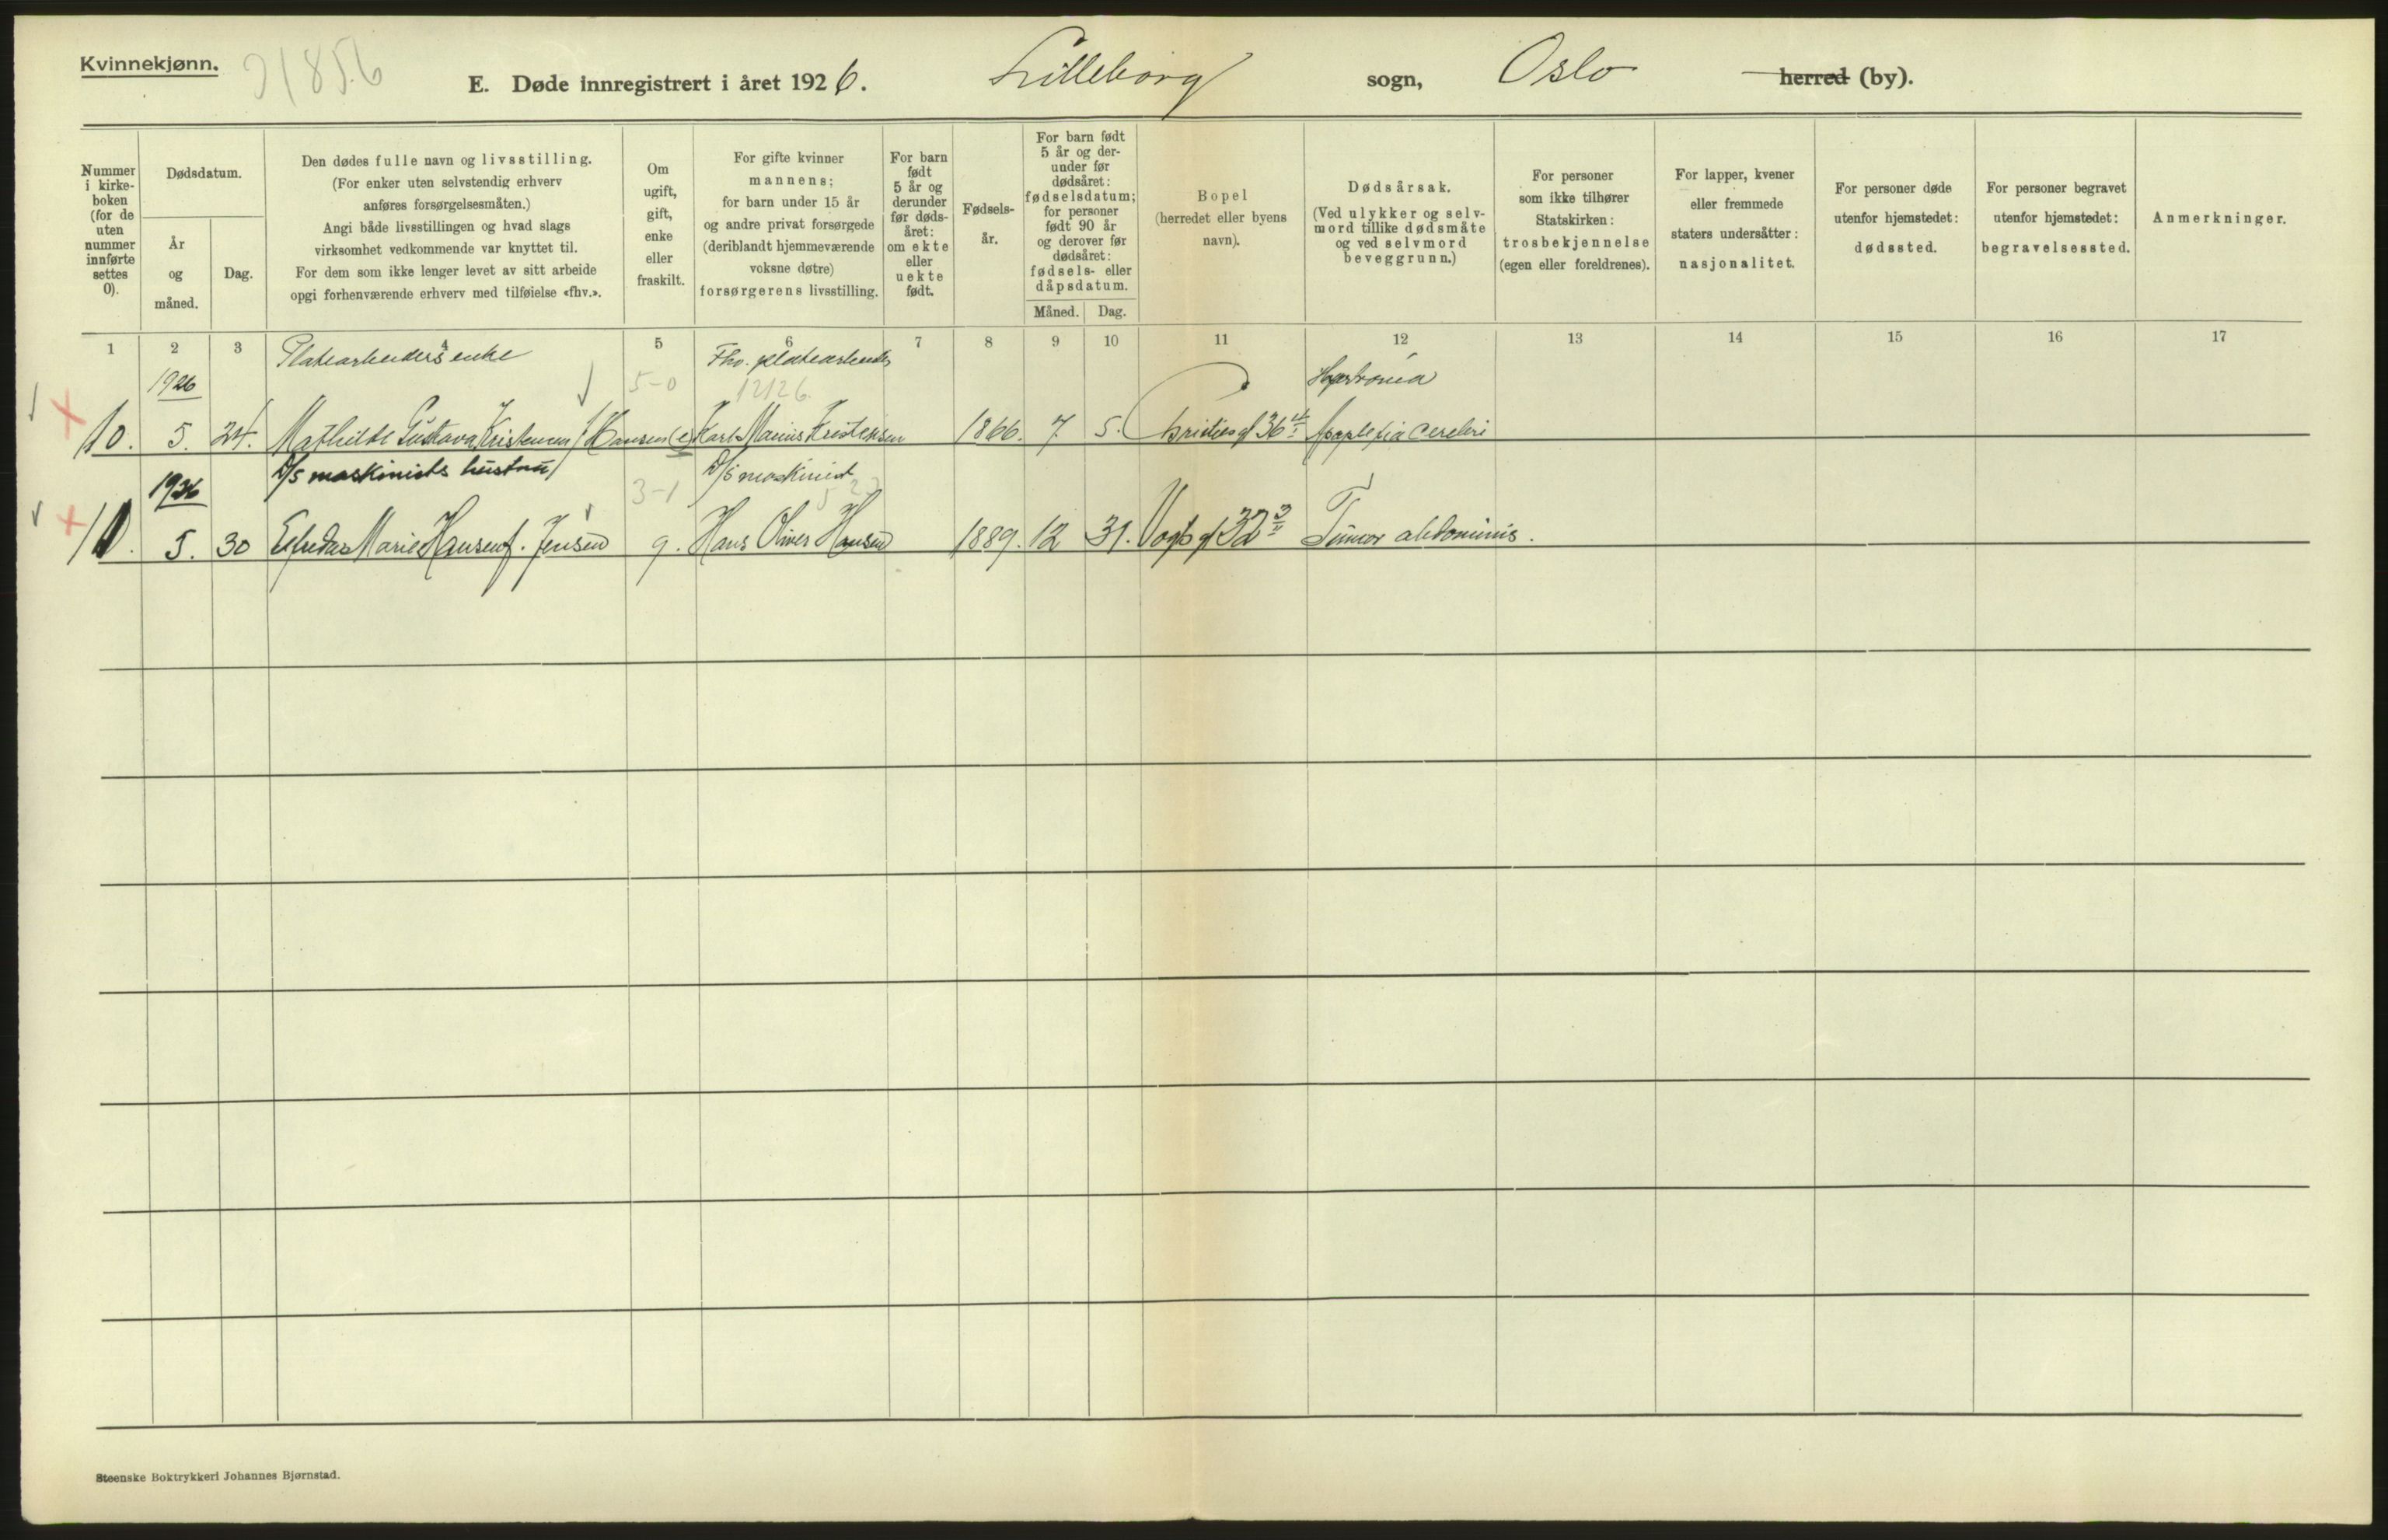 Kvinnekjønn.
E. Døde innregistrert i året 1926. Lilleborg sogn, Oslo herred (by).
Nummer i kirkeboken (for de uten nummer innførte settes 0).
Dødsdatum.
År og måned.
Dag.
Den dødes fulle navn og livsstilling.
(For enker uten selvstendig erhverv
anføres forsørgelsesmåten.)
Angi både livsstillingen og hvad slags
virksomhet vedkommende var knyttet til.
For dem som ikke lenger levet av sitt arbeide
opgi forhenværende erhverv med tilføielse «fhv.».
Om
ugift,
gift,
enke
eller
fraskilt.
For gifte kvinner
mannens;
for barn under 15 år
og andre privat forsørgede
(deriblandt hjemmeværende
voksne døtre)
forsørgerens livsstilling.
For barn
født
5 år og
derunder
før døds-
året:
om ekte
eller
uekte
født.
Fødsels-
år.
For barn født
5 år og der-
under før
dødsåret:
fødselsdatum;
for personer
født 90 år
og derover før
dødsåret:
fødsels- eller
dåpsdatum.
Måned. Dag.
Bopel
(herredet eller byens
navn).
Dødsårsak.
(Ved ulykker og selv-
mord tillike dødsmåte
og ved selvmord
beveggrunn.)
For personer
som ikke tilhører
Statskirken:
trosbekjennelse
(egen eller foreldrenes).
For lapper, kvener
eller fremmede
staters undersåtter:
nasjonalitet.
For personer døde
utenfor hjemstedet:
dødssted.
For personer begravet
utenfor hjemstedet:
begravelsessted.
Anmerkninger.
1 2 3 4 5 6 7 8 9 10 11 12 13 14 15 16 17
Platearbeiders enke Fhv. platearbeider
1926 5-0 12126
10. 5. 24. Mathilde Gustava Kristensen f. Hansen (e) Karl Marius Kristensen 1866. 7. 5. Christies gt 36 Apoplexia cerebri
D/S maskinists hustru D/S maskinist
1926 3-1
5. 30 Marie Hansen f. Jensen g. Hans Oliver Hansen 1889. 12 31. Vogts gt 32 Tumor abdominis.
Steenske Boktrykkeri Johannes Bjørnstad.